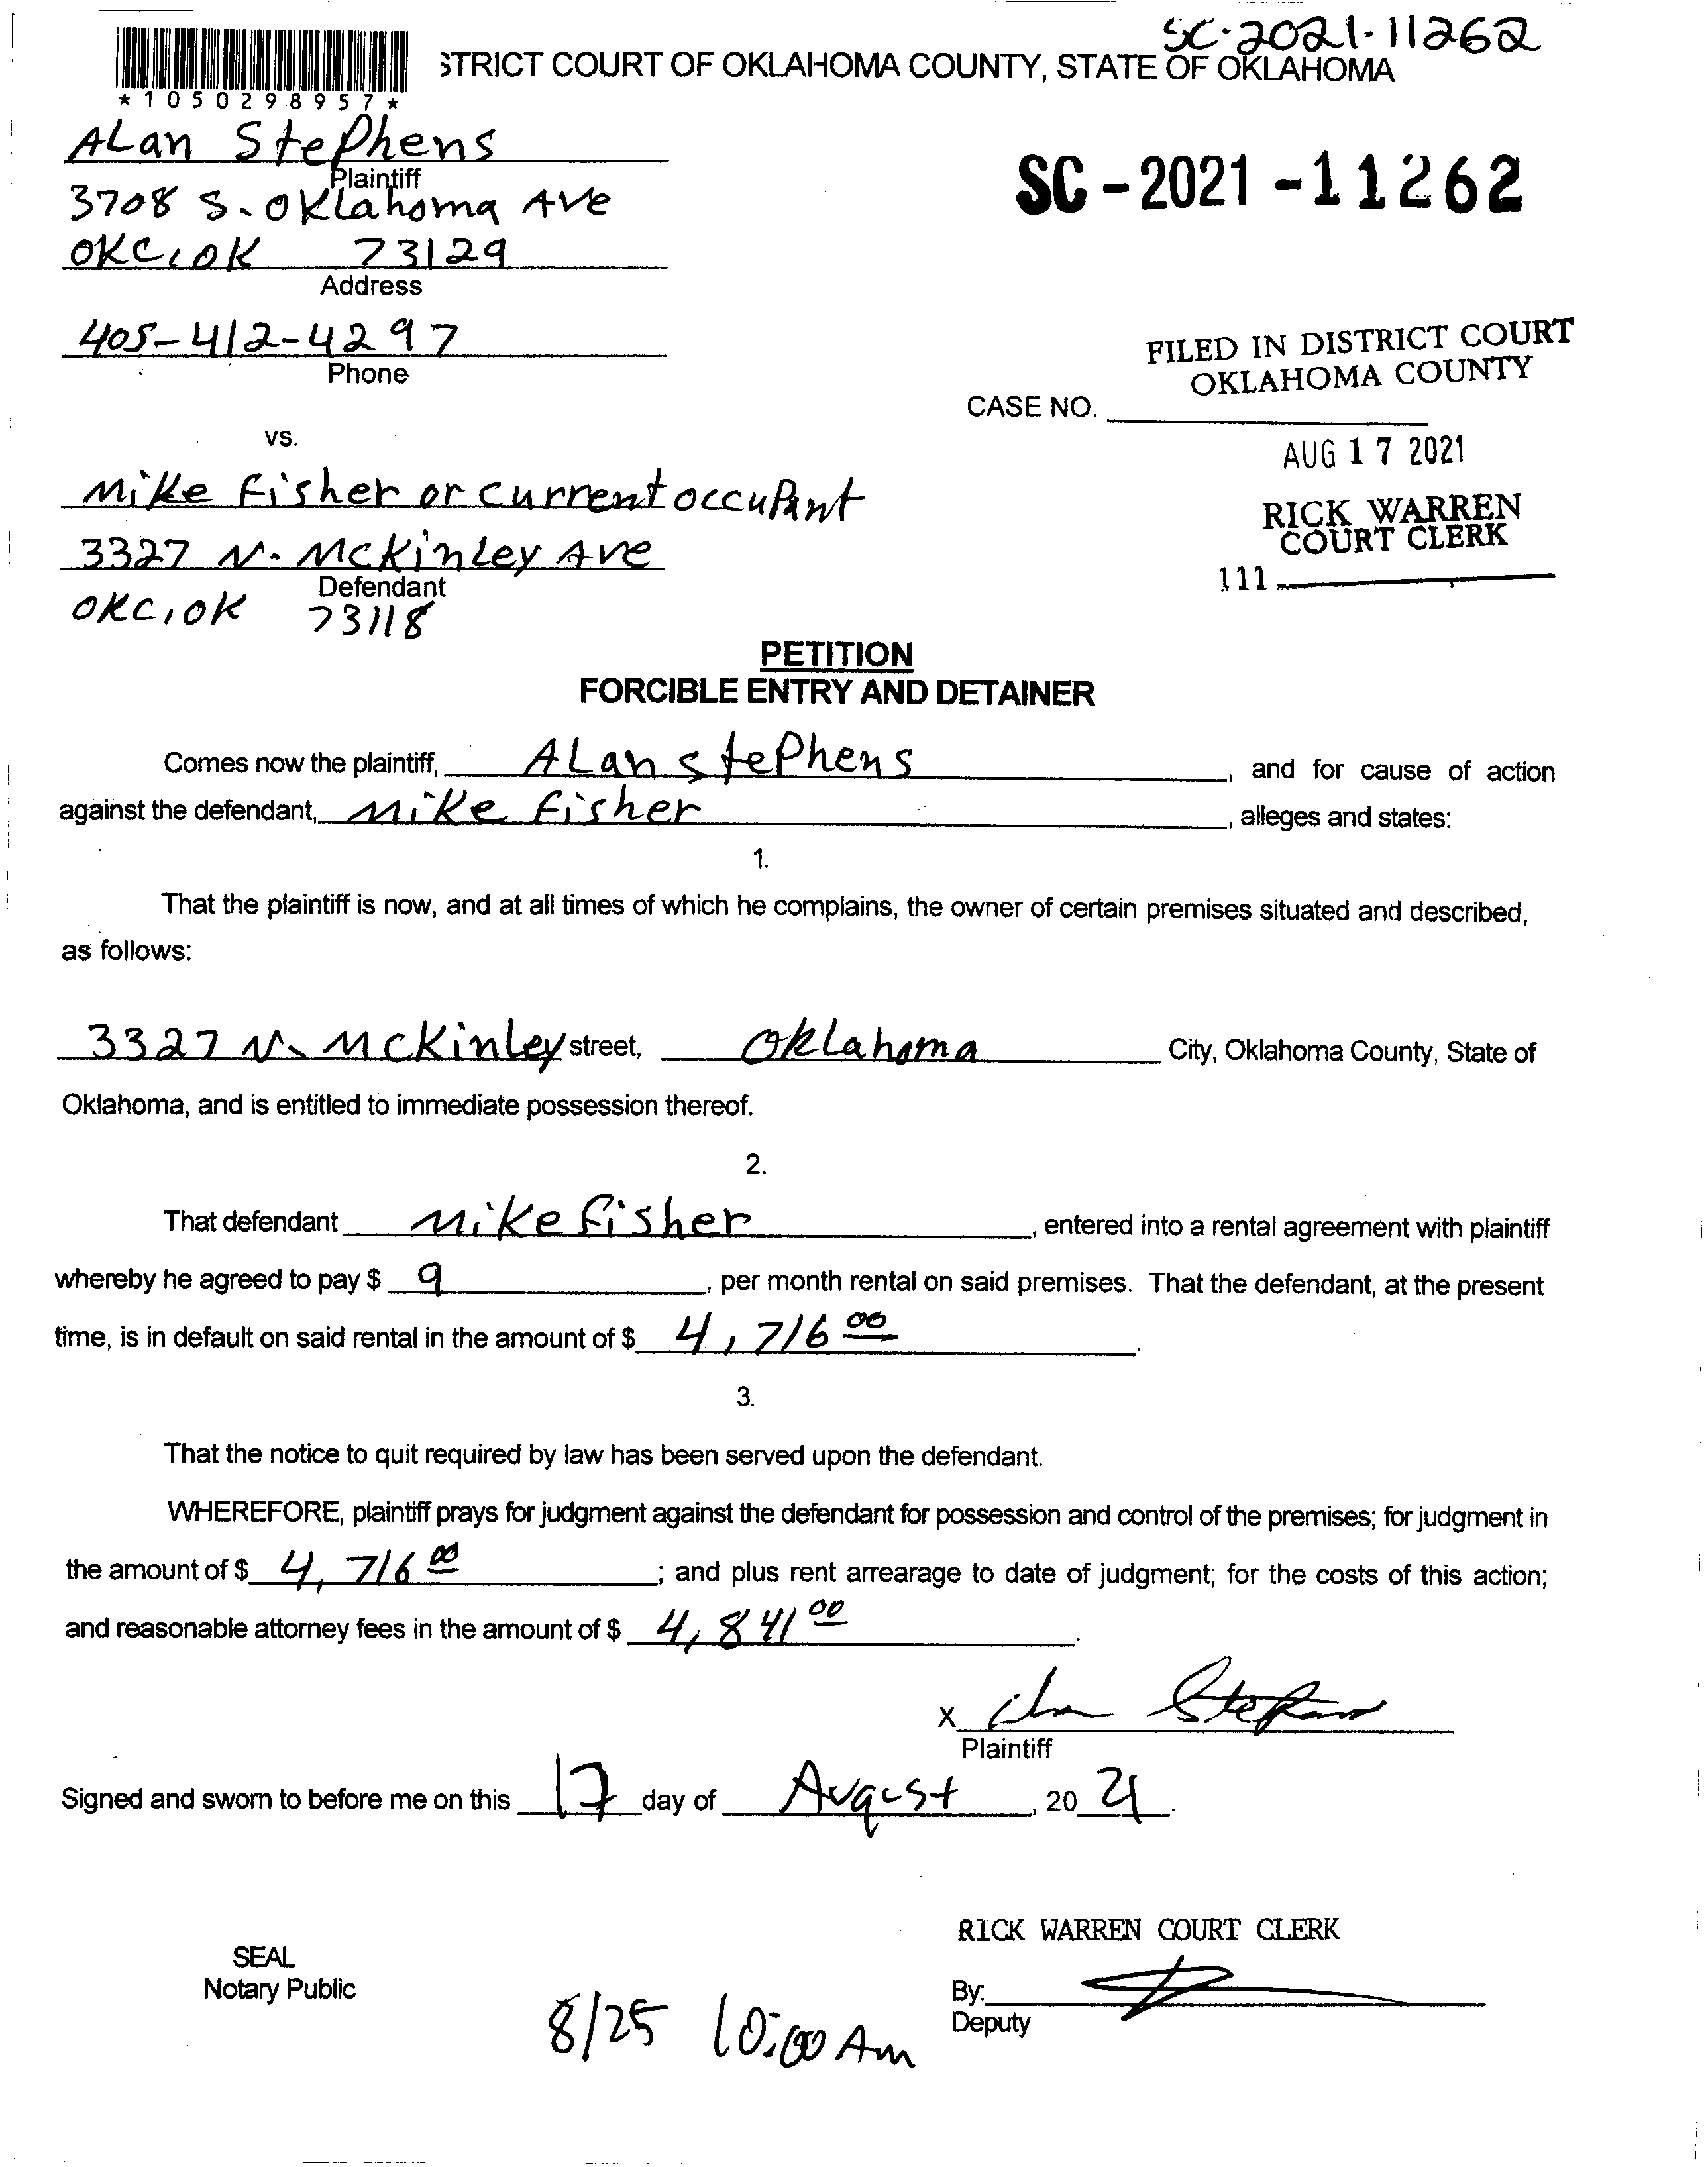 SC-2021-11262
STRICT COURT OF OKLAHOMA COUNTY, STATE OF OKLAHOMA
*1050298957*
ALan StePhens
Plaintiff
3708 S. OKLahoma Ave
OKC, OK 73129
Address
SC-2021-11262
405-412-4297
Phone
FILED IN DISTRICT COURT
OKLAHOMA COUNTY
CASE NO.
AUG 17 2021
RICK WARREN
COURT CLERK
111
vs.
Mike Fisher or current occuPant
3327 N. McKinLey Ave
Defendant
OKC, OK 73118
PETITION
FORCIBLE ENTRY AND DETAINER
Comes now the plaintiff, ALan StePhens, and for cause of action
against the defendant, Mike Fisher, alleges and states:
1.
That the plaintiff is now, and at all times of which he complains, the owner of certain premises situated and described,
as follows:
3327 N. McKinLey street, OkLahoma City, Oklahoma County, State of
Oklahoma, and is entitled to immediate possession thereof.
2.
That defendant Mike Fisher, entered into a rental agreement with plaintiff
whereby he agreed to pay $ 9, per month rental on said premises. That the defendant, at the present
time, is in default on said rental in the amount of $ 4,716 00.
3.
That the notice to quit required by law has been served upon the defendant.
WHEREFORE, plaintiff prays for judgment against the defendant for possession and control of the premises; for judgment in
the amount of $ 4,716 00; and plus rent arrearage to date of judgment; for the costs of this action;
and reasonable attorney fees in the amount of $ 4,841 00.
X
Plaintiff
Signed and sworn to before me on this 17 day of August, 20 21.
RICK WARREN COURT CLERK
SEAL
Notary Public
By:
Deputy
8/25 10:00 Am